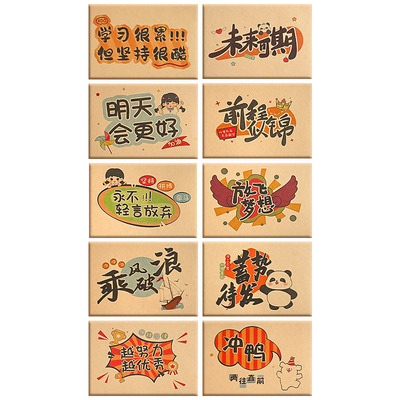 学习很累!!!
但坚持很酷
未来可期
明天
会更好
加油
前程
似锦
坚持
拼搏
永不!!!
轻言放弃
放飞
梦想
乘风破浪
蓄势
待发
越努力
越优秀
冲鸭
勇往直前